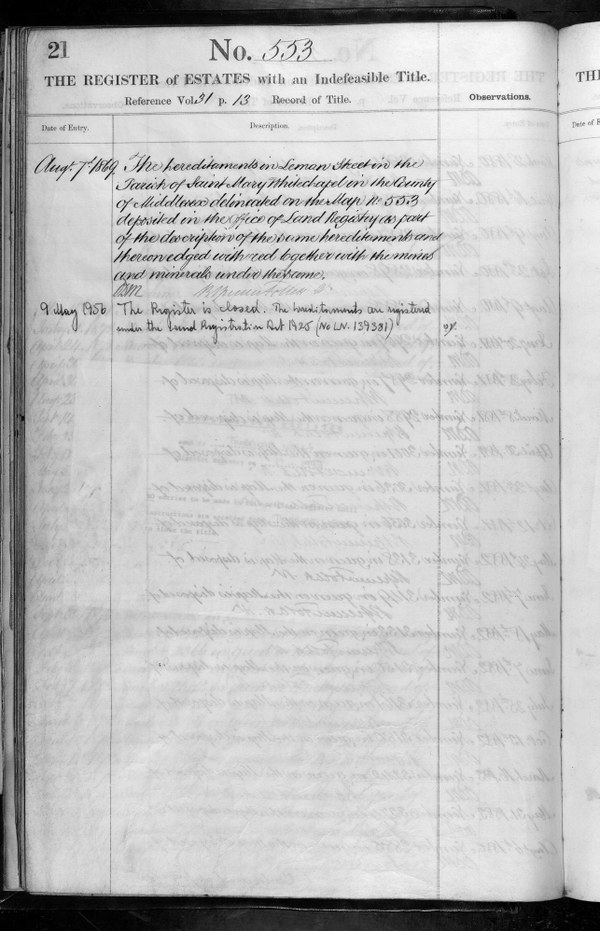 21
No. 553
THE REGISTER of ESTATES with an Indefeasible Title.
Reference Vol. 31 p. 13 Record of Title.
Observations.
Date of Entry.
Description.
Augt. 7th 1869
The hereditaments in Leman Street in the
Parish of Saint Mary Whitechapel in the County
of Middlesex delineated on the Map No. 553
deposited in the Office of Land Registry as part
of the description of the same hereditaments and
thereon edged with red together with the mines
and minerals under the same.
9 May 1956
The Register is closed. The hereditaments are registered
under the Land Registration Act 1925 (No LN. 139381)
TH
Date of E